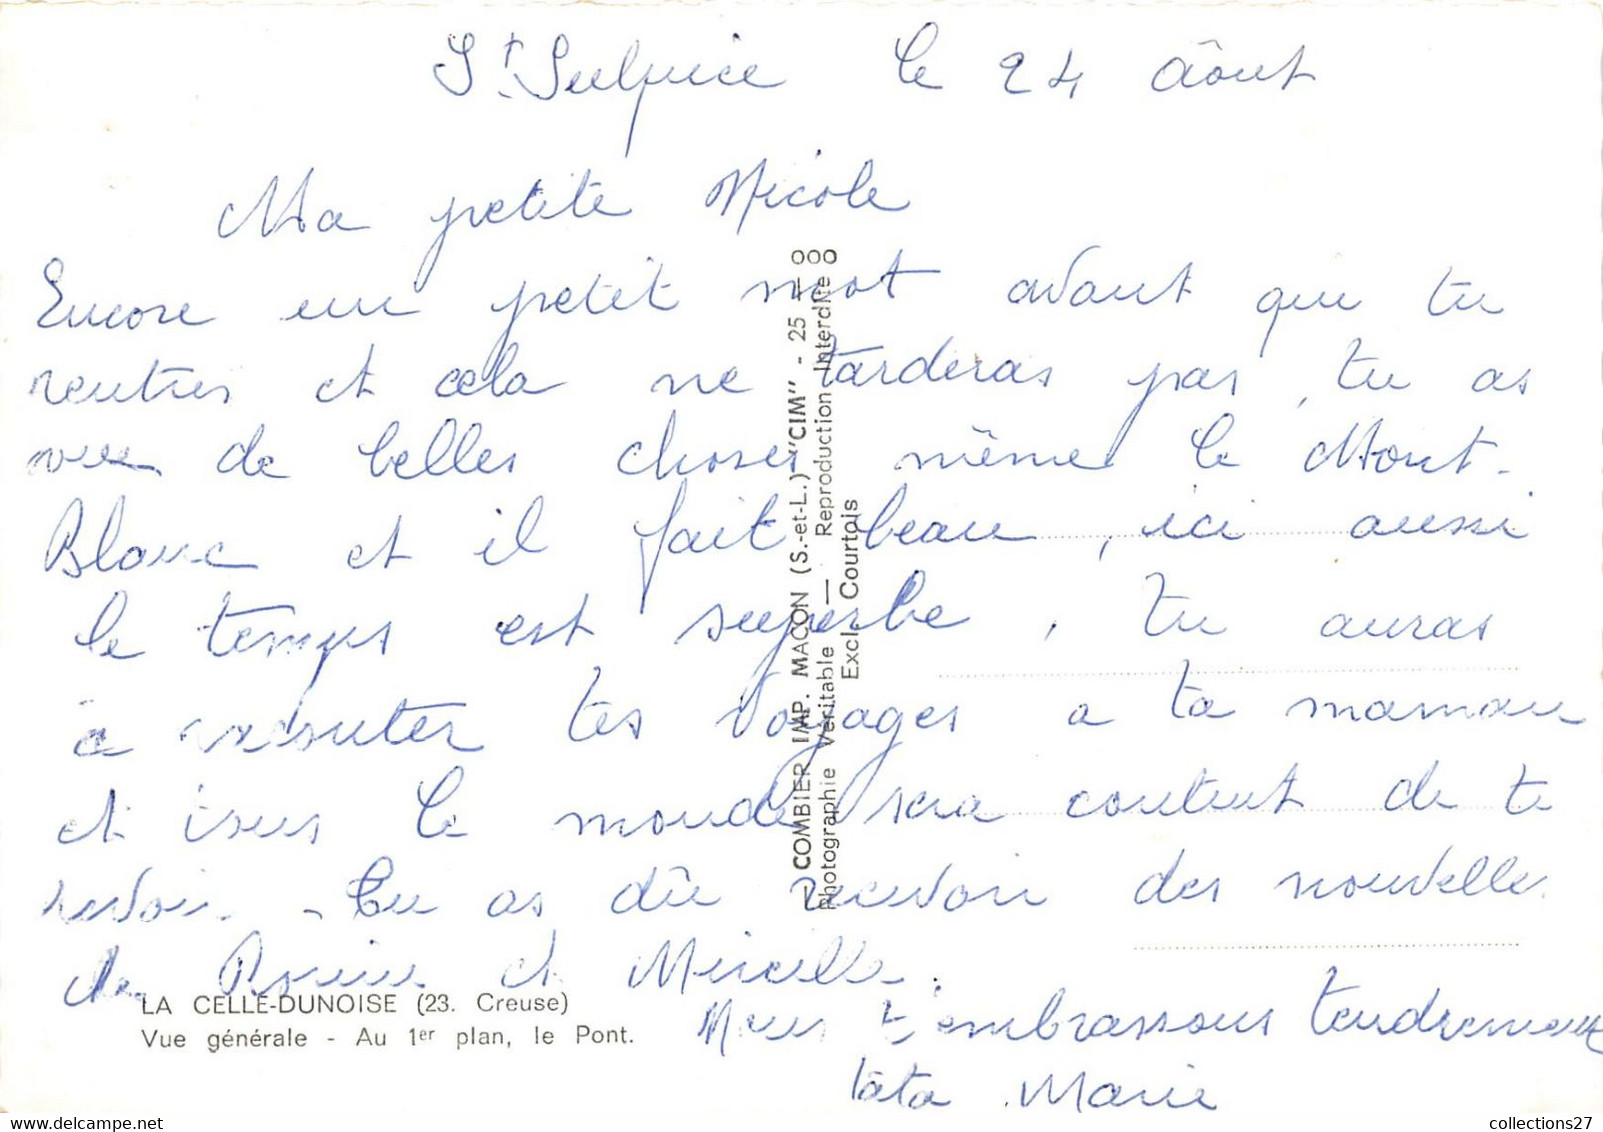 St. Sulpice le 24 Août
Ma petite Nicole
Encore un petit mot avant que tu
rentres et cela ne tarderas pas, tu as
vue de belles choses même le Mont-
Blanc et il fait beau, ici aussi
le temps est superbe, tu auras
a raconter tes voyages a ta maman
et tous le monde sera content de te
revoir. - Tu as dû recevoir des nouvelles
de et Mireille.
Nous t'embrassons tendrement
tâta Marie
LA CELLE-DUNOISE (23. Creuse)
Vue générale - Au 1er plan, le Pont.
COMBIER IMP. MACON (S.-et-L.) "CIM" - 25 - 000
Photographie Véritable — Reproduction Interdite
Excl. Courtois
collections27